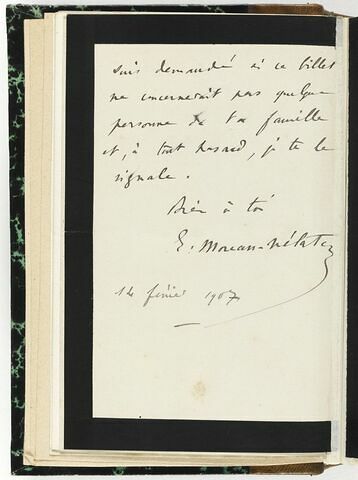 suis demandé si ce billet
ne concernerait pas quelque
personne de ta famille
et, à tout hasard, je te le
signale.
Bien à toi
E. Moreau-Nélaton
14 février 1907